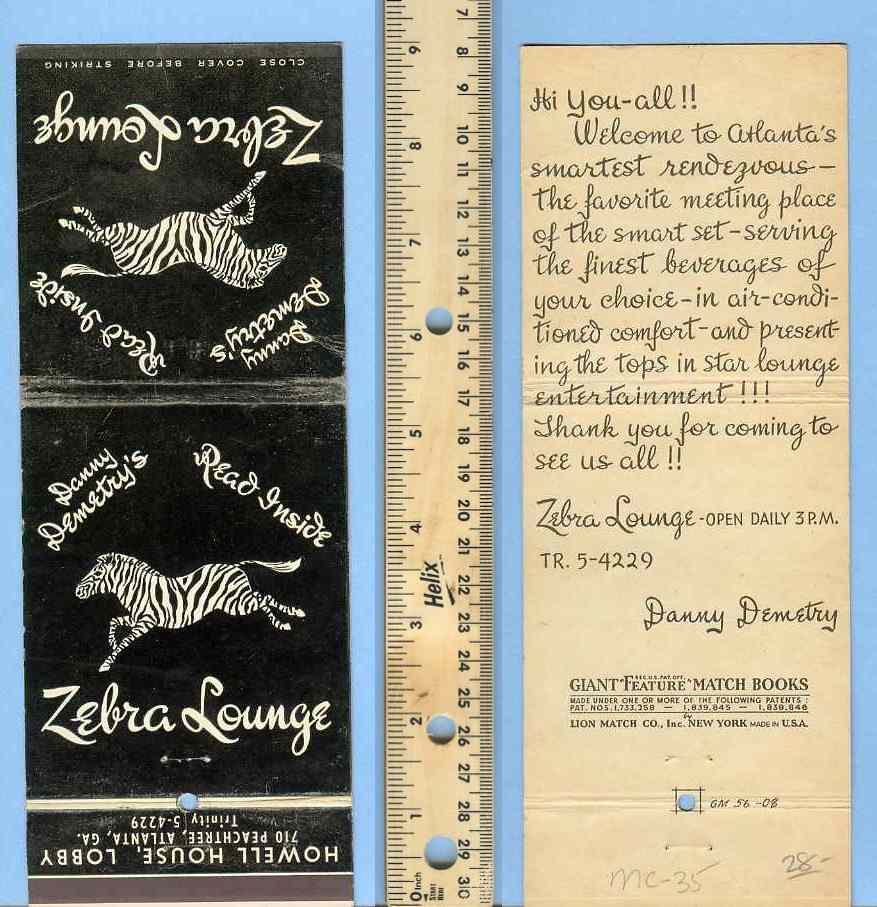 CLOSE COVER BEFORE STRIKING
Zebra Lounge
Danny
Demetry's
Read Inside
Danny
Demetry's
Read Inside
Zebra Lounge
HOWELL HOUSE, LOBBY
710 PEACHTREE, ATLANTA, GA.
Trinity 5-4229
7 8 9 10 11 12 13 14 15 16 17 18 19 20 21 22 23 24 25 26 27 28 29 30
9 8 7 6 5 4 3 2 1 0 Inch
Helix
Hi You-all!!
Welcome to Atlanta's
smartest rendezvous—
the favorite meeting place
of the smart set-serving
the finest beverages of
your choice-in air-condi-
tioned comfort-and present-
ing the tops in star lounge
entertainment !!!
Thank you for coming to
see us all !!
Zebra Lounge-OPEN DAILY 3 P.M.
TR. 5-4229
Danny Demetry
REG. U.S. PAT. OFF.
GIANT "FEATURE" MATCH BOOKS
MADE UNDER ONE OR MORE OF THE FOLLOWING PATENTS:
PAT. NOS. 1,733,258 — 1,839,845 — 1,839,846
by
LION MATCH CO., Inc. NEW YORK MADE IN U.S.A.
GM 56-08
MC-35
28-